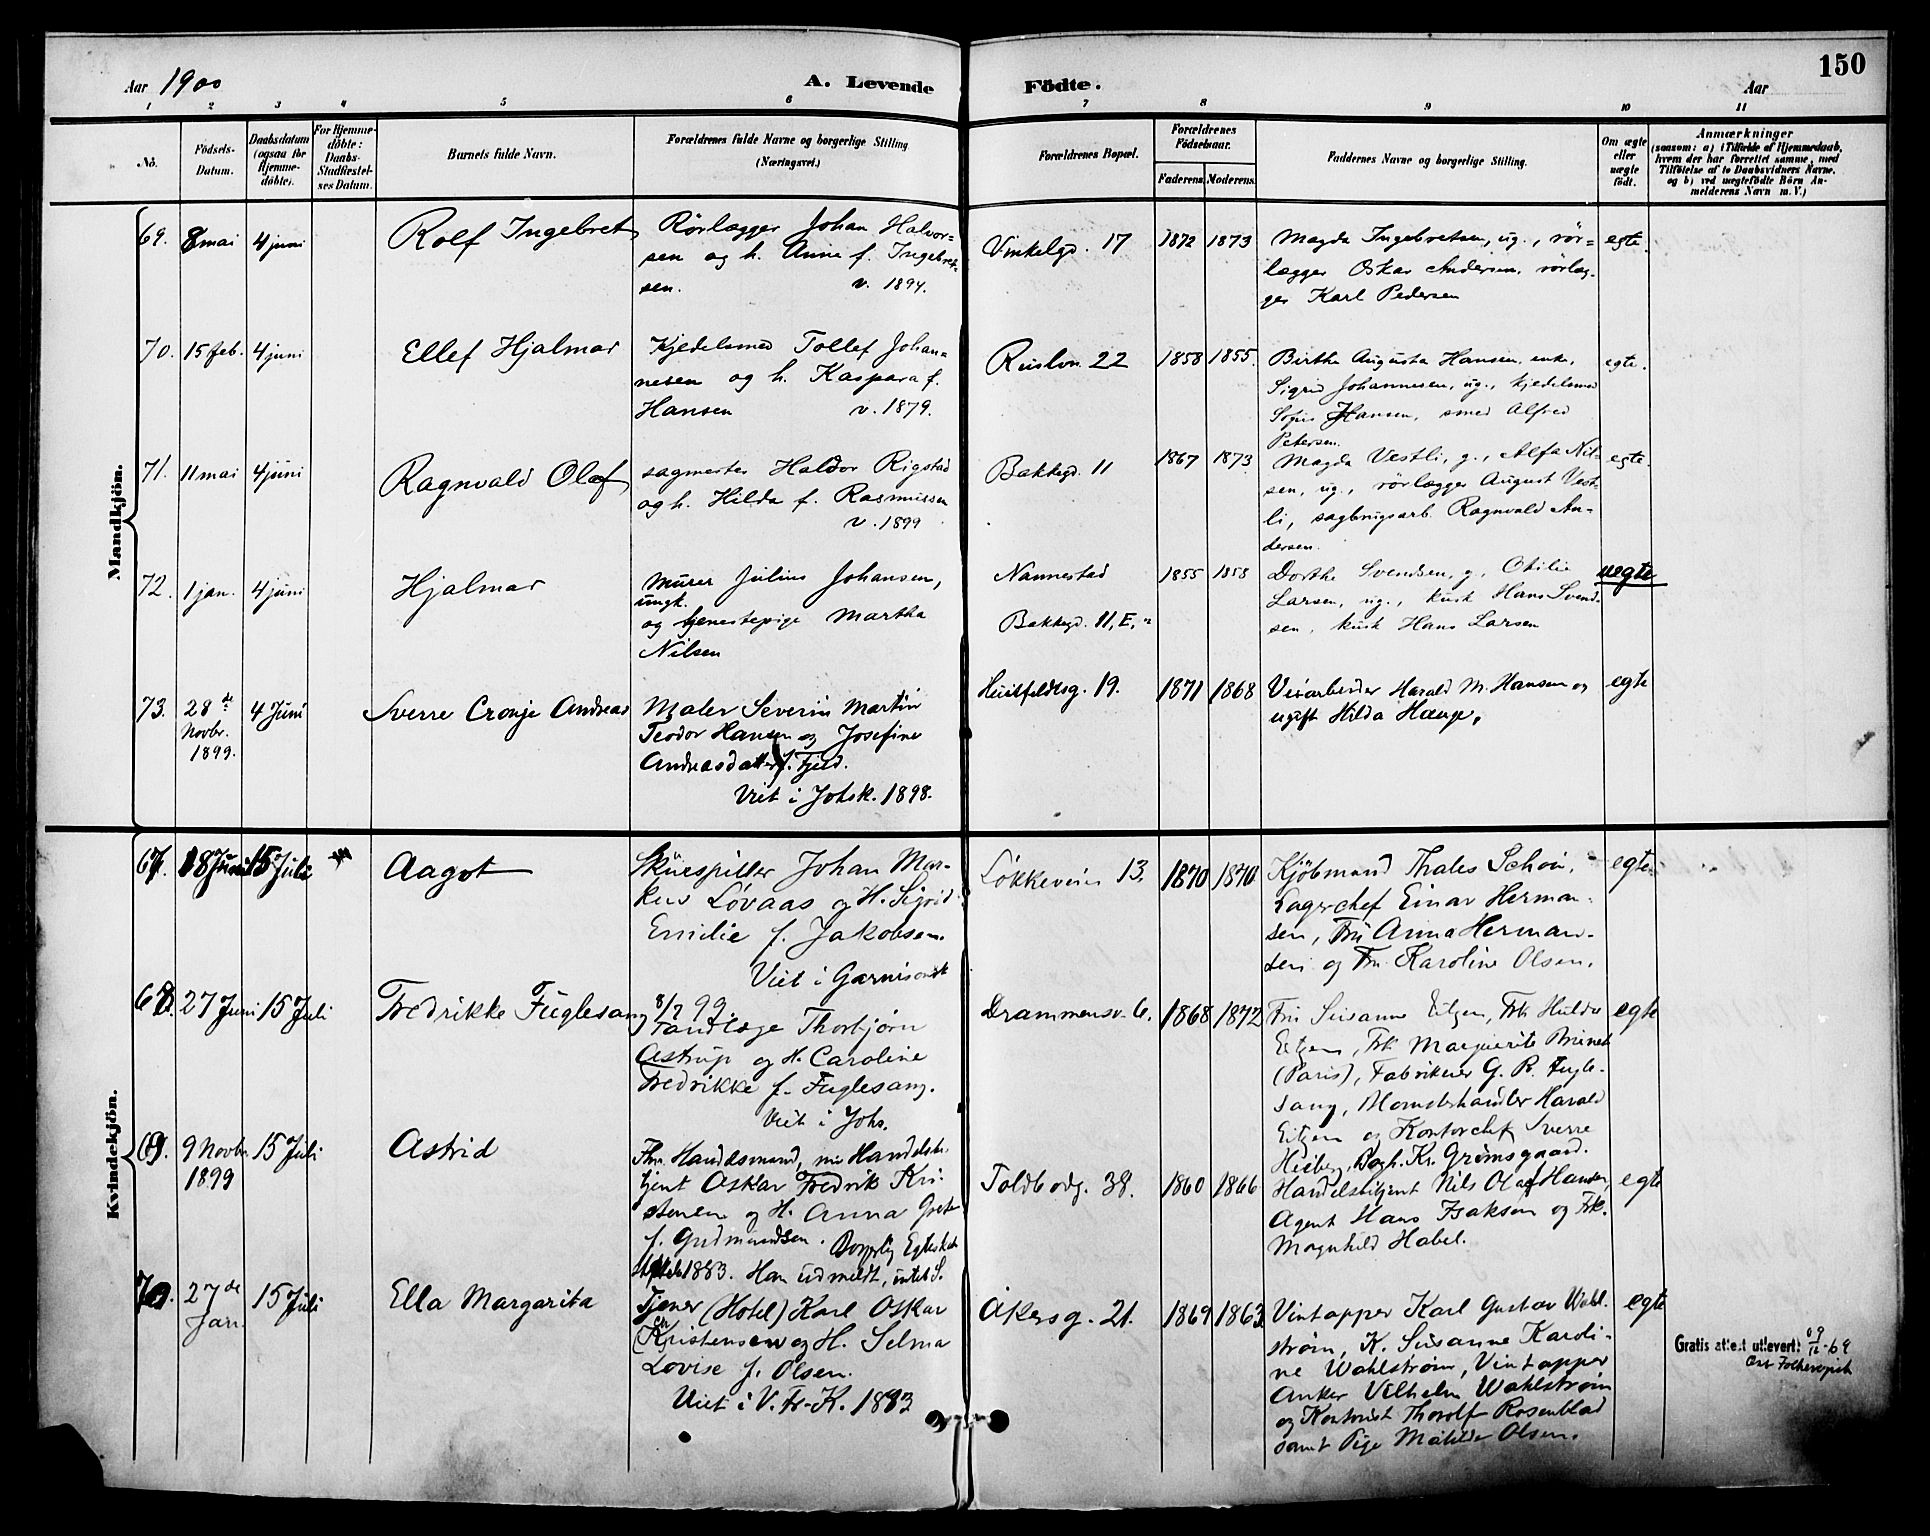 150
Aar 1900
A. Levende
Födte.
Aar
1 2 3 4 5 6 7 8 9 10 11
No.
Födsels-
Datum.
Daabsdatum
(ogsaa for
Hjemme-
döbte).
For Hjemme-
döbte:
Daabs-
Stadfæstel-
ses Datum.
Barnets fulde Navn.
Forældrenes fulde Navne og borgerlige Stilling
(Næringsvei.)
Forældrenes Bopæl.
Forældrenes
Födselsaar.
Faderens
Moderens
Faddernes Navne og borgerlige Stilling.
Om ægte
eller
uægte
födt.
Anmærkninger
(saasom: a) i Tilfælde af Hjemmedaab,
hvem der har forrettet samme, med
Tilföielse af to Daabsvidners Navne,
og b) ved uægtefödte Börn An-
melderens Navn m. V.)
Mandkjön.
69. 8 mai 4 juni
Rolf Ingebret
Rörlægger Johan Halvor-
sen og h. Anna f. Ingebret-
sen. v. 1894.
Vinkelgd. 17
1872 1873
Magda Ingebretsen, ug., rör-
lægger Oskar Andersen, rörlæg-
ger Karl Pedersen
egte.
70. 15 feb. 4 juni
Ellef Hjalmar
Kjedelsmed Tollef Johan-
nesen og h. Kaspara f.
Hansen v. 1879.
Ruslvn. 22
1858 1855.
Birthe Augusta Hansen, enke,
Sigrid Johannesen, ug., kjedelsmed
Sofus Hansen, smed Alfred
Petersen.
egte.
71. 11 mai 4 juni
Ragnvald Olaf
sagmester Haldor Rigstad
og h. Hilda f. Rasmussen
v. 1899
Bakkegd. 11
1867 1873
Magda Vestli, g., Alfa Nil-
sen, ug., rörlægger August Vest-
li, sagbrugsarb. Ragnvald An-
dersen.
egte.
72. 1 jan. 4 juni
Hjalmar
Murer Julius Johansen,
ungk.
og tjenestepige Martha
Nilsen
Nannestad
Bakkegd. 11, E,
1855 1858
Dorthe Svendsen, g., Otilie
Larsen, ug., kusk Hans Svend-
sen, kusk Hans Larsen
uegte
73. 28de
Novbr.
1899.
4 Juni
Sverre Cronje Andreas
Maler Severin Martin
Teodor Hansen og Josefine
Andreasdatter f. Fjeld.
Viet i Johsk. 1898.
Huitfeldtsg. 19.
1871 1868
Visarbeider Harald M. Hansen og
ugift Hilda Hauge.
egte
Kvindekjön.
67. 18 Juni 15 Juli
Aagot
Skuespiller Johan Mar-
kus Lövaas og H. Sigrid
Emilie f. Jakobsen.
Viet i Garnisonsk
8/7 99.
Lökkeveien 13.
1870 1870
Kjöbmand Thales Schou,
Lagerchef Einar Herman-
sen, Fru Anna Herman-
sen og Fru Karoline Olsen.
egte.
68. 27 Juni 15 Juli
Fredrikke Fuglesang
Tandlæge Thorbjörn
Astrup og H. Caroline
Fredrikke f. Fuglesang.
Viet i Johs.
Drammensv. 6.
1868 1872
Fru Susanne Eitzen, Frk Hulda
Eitzen, Frk. Marguerite Brinet
(Paris), Fabrikeier G. R. Fugle-
sang, Blomsterhandler Harald
Eitzen og Kontorchef Sverre
Heiberg, Bogh. Kr. Grimsgaard.
egte
69. 9 Novbr.
1899
15 Juli
Astrid
Fhv. Handelsmand, nu Handelsbe-
tjent Oskar Fredrik Kri-
stensen og H. Anna Grete
f. Gudmundsen. Borgerlig Egteskab
1883. Han udmeldt,
Toldbodg. 38.
1860 1866
Handelsbetjent Nils Olaf Hansen,
Agent Hans Isaksen og Frk.
Magnhild Habel.
egte
70. 27de
Jan.
15 Juli
Ella Margarita
Tjener (Hotel) Karl Oskar
Kristensen og H. Selma
Lovise f. Olsen.
Viet i V. Fr.-K. 1893
Akersg. 21.
1869 1863
Vintapper Karl Gustav Wahl-
ström, K. Susanne Karoli-
ne Wahlström, Vintapper
Anker Vilhelm Wahlström
og Kontorist Thorolf Rosenblad
samt Pige Matilde Olsen.
egte
Gratis attest utlevert: